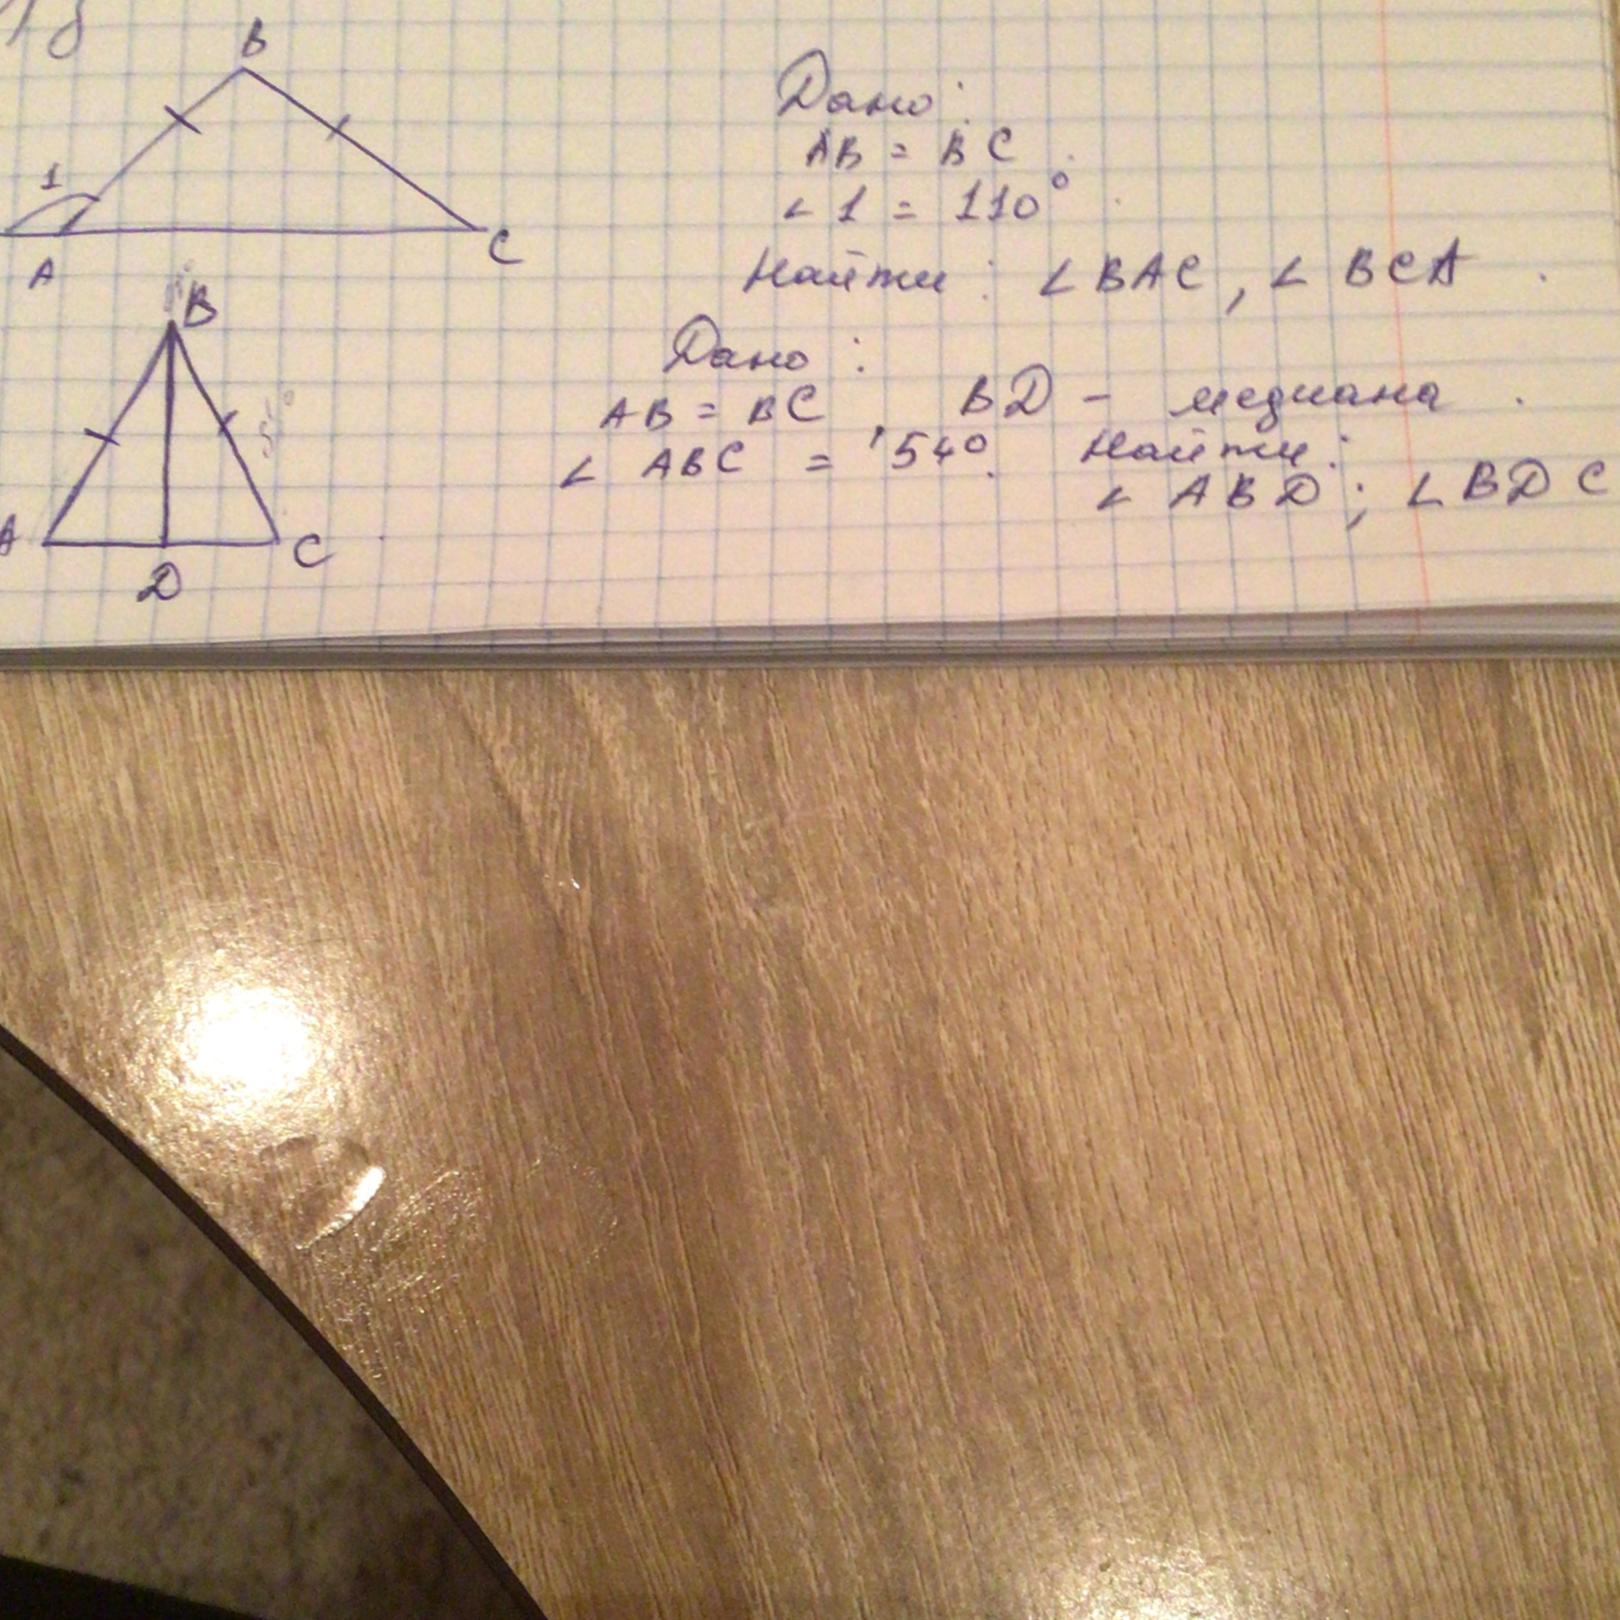 B
1
A
C
Дано:
AB = BC
∠1 = 110°
Найти: ∠BAC, ∠BCA
B
A
D
C
Дано:
AB = BC, BD - медиана.
∠ABC = 54°. Найти:
∠ABD; ∠BDC